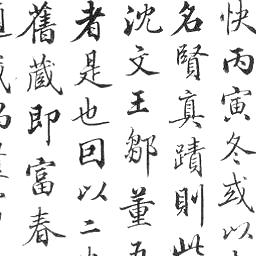 快丙寅冬或以
名賢真蹟則此
沈文王鄒董五
者是也回以二
舊藏即富春